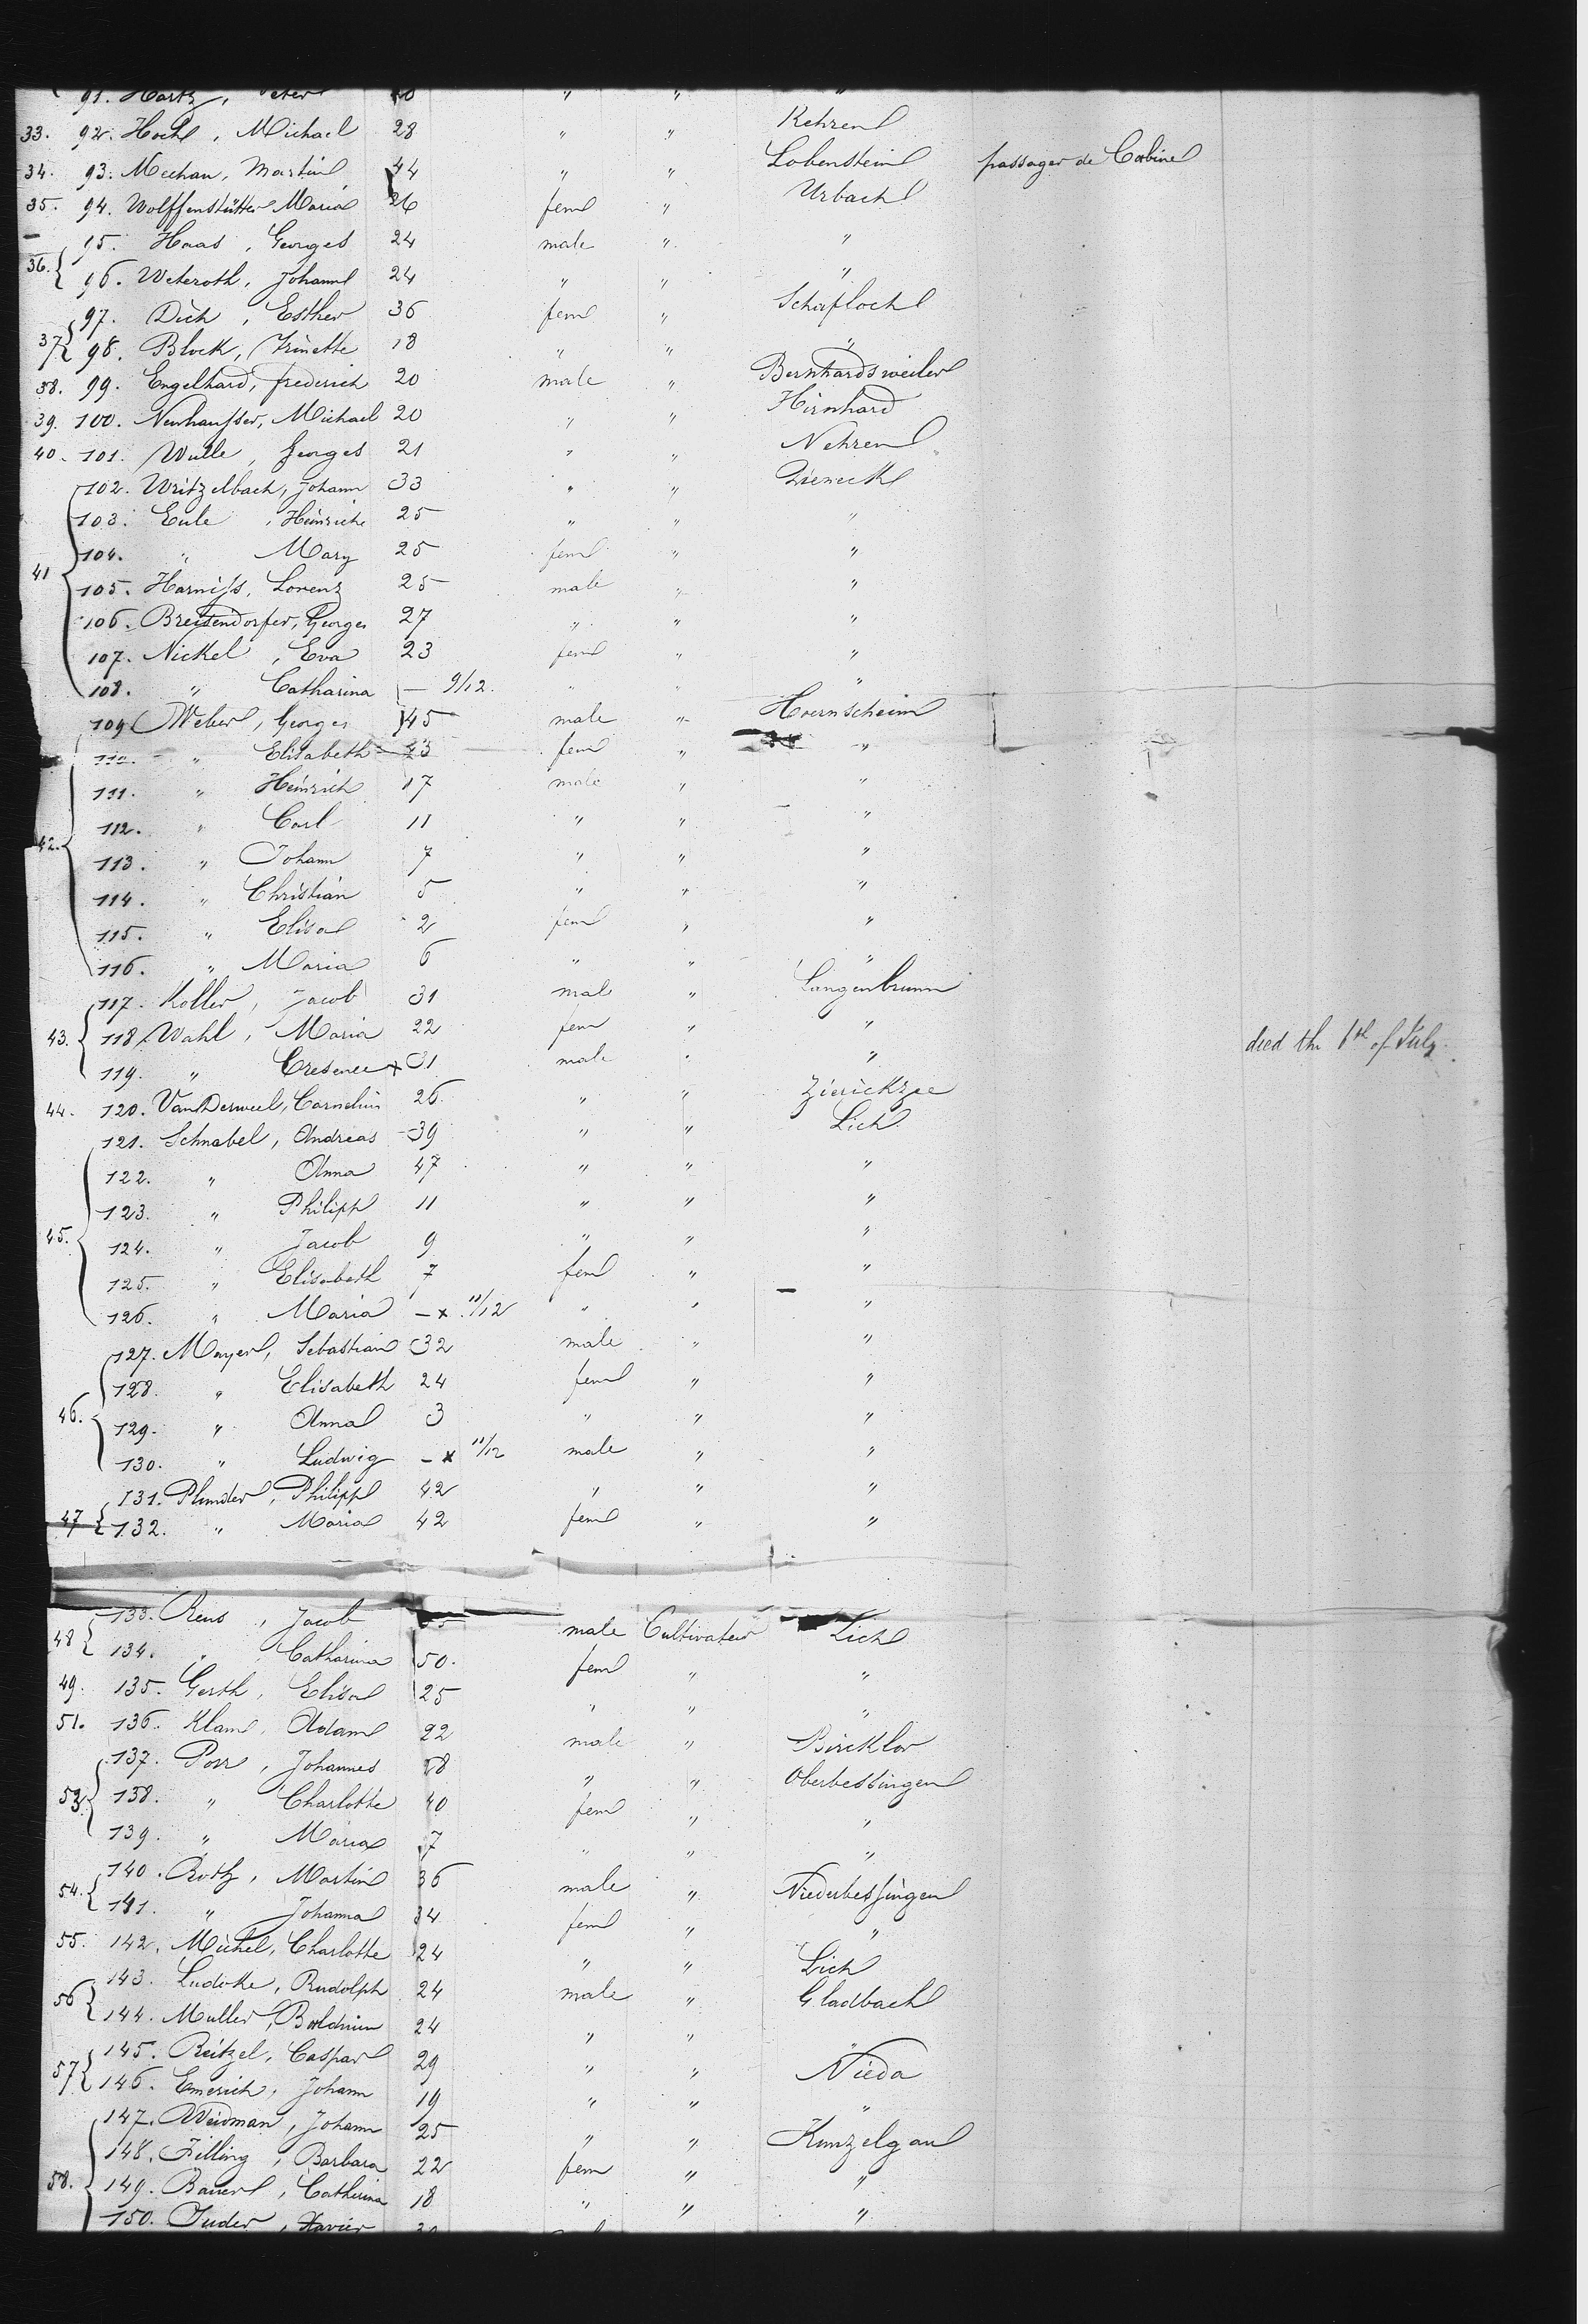 91. Hartz, Peter " " "
33. 92. Hoch, Michael 28 " " Kehren
34. 93. Meehan, Martin 44 " " Lobenstein passager de Cabine
35. 94. Wolffenstütter Maria 26 fem " Urbach
95. Haas, Georges 24 male " "
36. { 96. Weteroth, Johann 24 " " "
97. Dich, Esther 36 fem " Schafloch
37 { 98. Block, Trinette 18 " " "
38. 99. Engelhard, frederich 20 male " Bernhardsweiler
39. 100. Neuhausser, Michael 20 " " Hirnhard
40. 101. Wulle, Georges 21 " " Nehren
102. Writzelbach, Johann 33 " "
103. Eule, Heinrich 25 " " "
104. " Mary 25 fem " "
41 { 105. Harniss, Lorenz 25 male " "
106. Breitendorfer, Georges 27 " " "
107. Nickel, Eva 23 fem " "
108. " Catharina — 9/12. " " "
109 Weber, Georges 45 male " Hoernscheim
110. " Elisabeth 43 fem " "
111. " Heinrich 17 male " "
112. " Carl 11 " " "
42. { 113. " Johann 7 " " "
114. " Christian 5 " " "
115. " Elisa 2 fem " "
116. " Maria 6 " " "
117. Koller, Jacob 31 mal " Langenbrunn
43. { 118. Wahl, Maria 22 fem " "
119. " Cresence x 31 male " " died the 1st of July.
44. 120. VanDerweel, Cornelius 26 " " Zierickzee
121. Schnabel, Andreas 39 " " Lich
122. " Anna 47 " " "
123. " Philipp 11 " " "
45. { 124. " Jacob 9 " " "
125. " Elisabeth 7 fem " "
126. " Maria — x 11/12 " " "
127. Mayer, Sebastian 32 male " "
128. " Elisabeth 24 fem " "
46. { 129. " Anna 3 " " "
130. " Ludwig — x 11/12 male " "
131. Plunder, Philipp 42 " " "
47 { 132. " Maria 42 fem " "
133. Reus, Jacob male Cultivateur Lich
48 { 134. " Catharina 50. fem " "
49. 135. Gerth, Elisa 25 " " "
51. 136. Klam, Adam 22 male " Bircklar
137. Porr, Johannes 28 " " Oberbessingen
53. { 138. " Charlotte 40 fem " "
139. " Maria 7 " " "
140. Rotz, Martin 36 male " Niederbessingen
54. { 141. " Johanna 34 fem " "
55. 142. Michel, Charlotte 24 " " Lich
143. Ludoke, Rudolph 24 male " Gladbach
56 { 144. Muller, Boldrian 24 " " "
145. Reitzel, Caspar 29 " " Nieda
57 { 146. Emerich, Johann 19 " " "
147. Weidman, Johann 25 " " Kunzelgau
148. Filling, Barbara 22 fem " "
58. { 149. Bauer, Catherina 18 " " "
150. Juder, Xavier